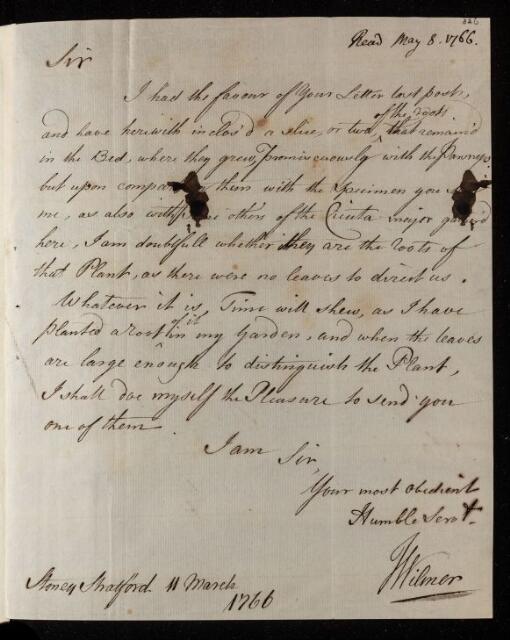 326
Read May 8. 1766.
Sir
I had the favour of Your Letter last post,
and have herewith inclos'd a slice, or two, of the roots that remain'd
in the Bed, where they grew promiscuously with the Parsneps
but upon compa them with the Specimen you
me, as also with some others of the Cicuta major
here, I am doubtfull whether they are the roots of
that Plant, as there were no leaves to direct us.
Whatever it is, Time will shew, as I have
planted a root of it in my Garden, and when the leaves
are large enough to distinguish the Plant,
I shall doe myself the Pleasure to send you
one of them.
I am Sir,
Your most obedient
Humble Servt.
JWilmer
Stoney Stratford. 11 March
1766